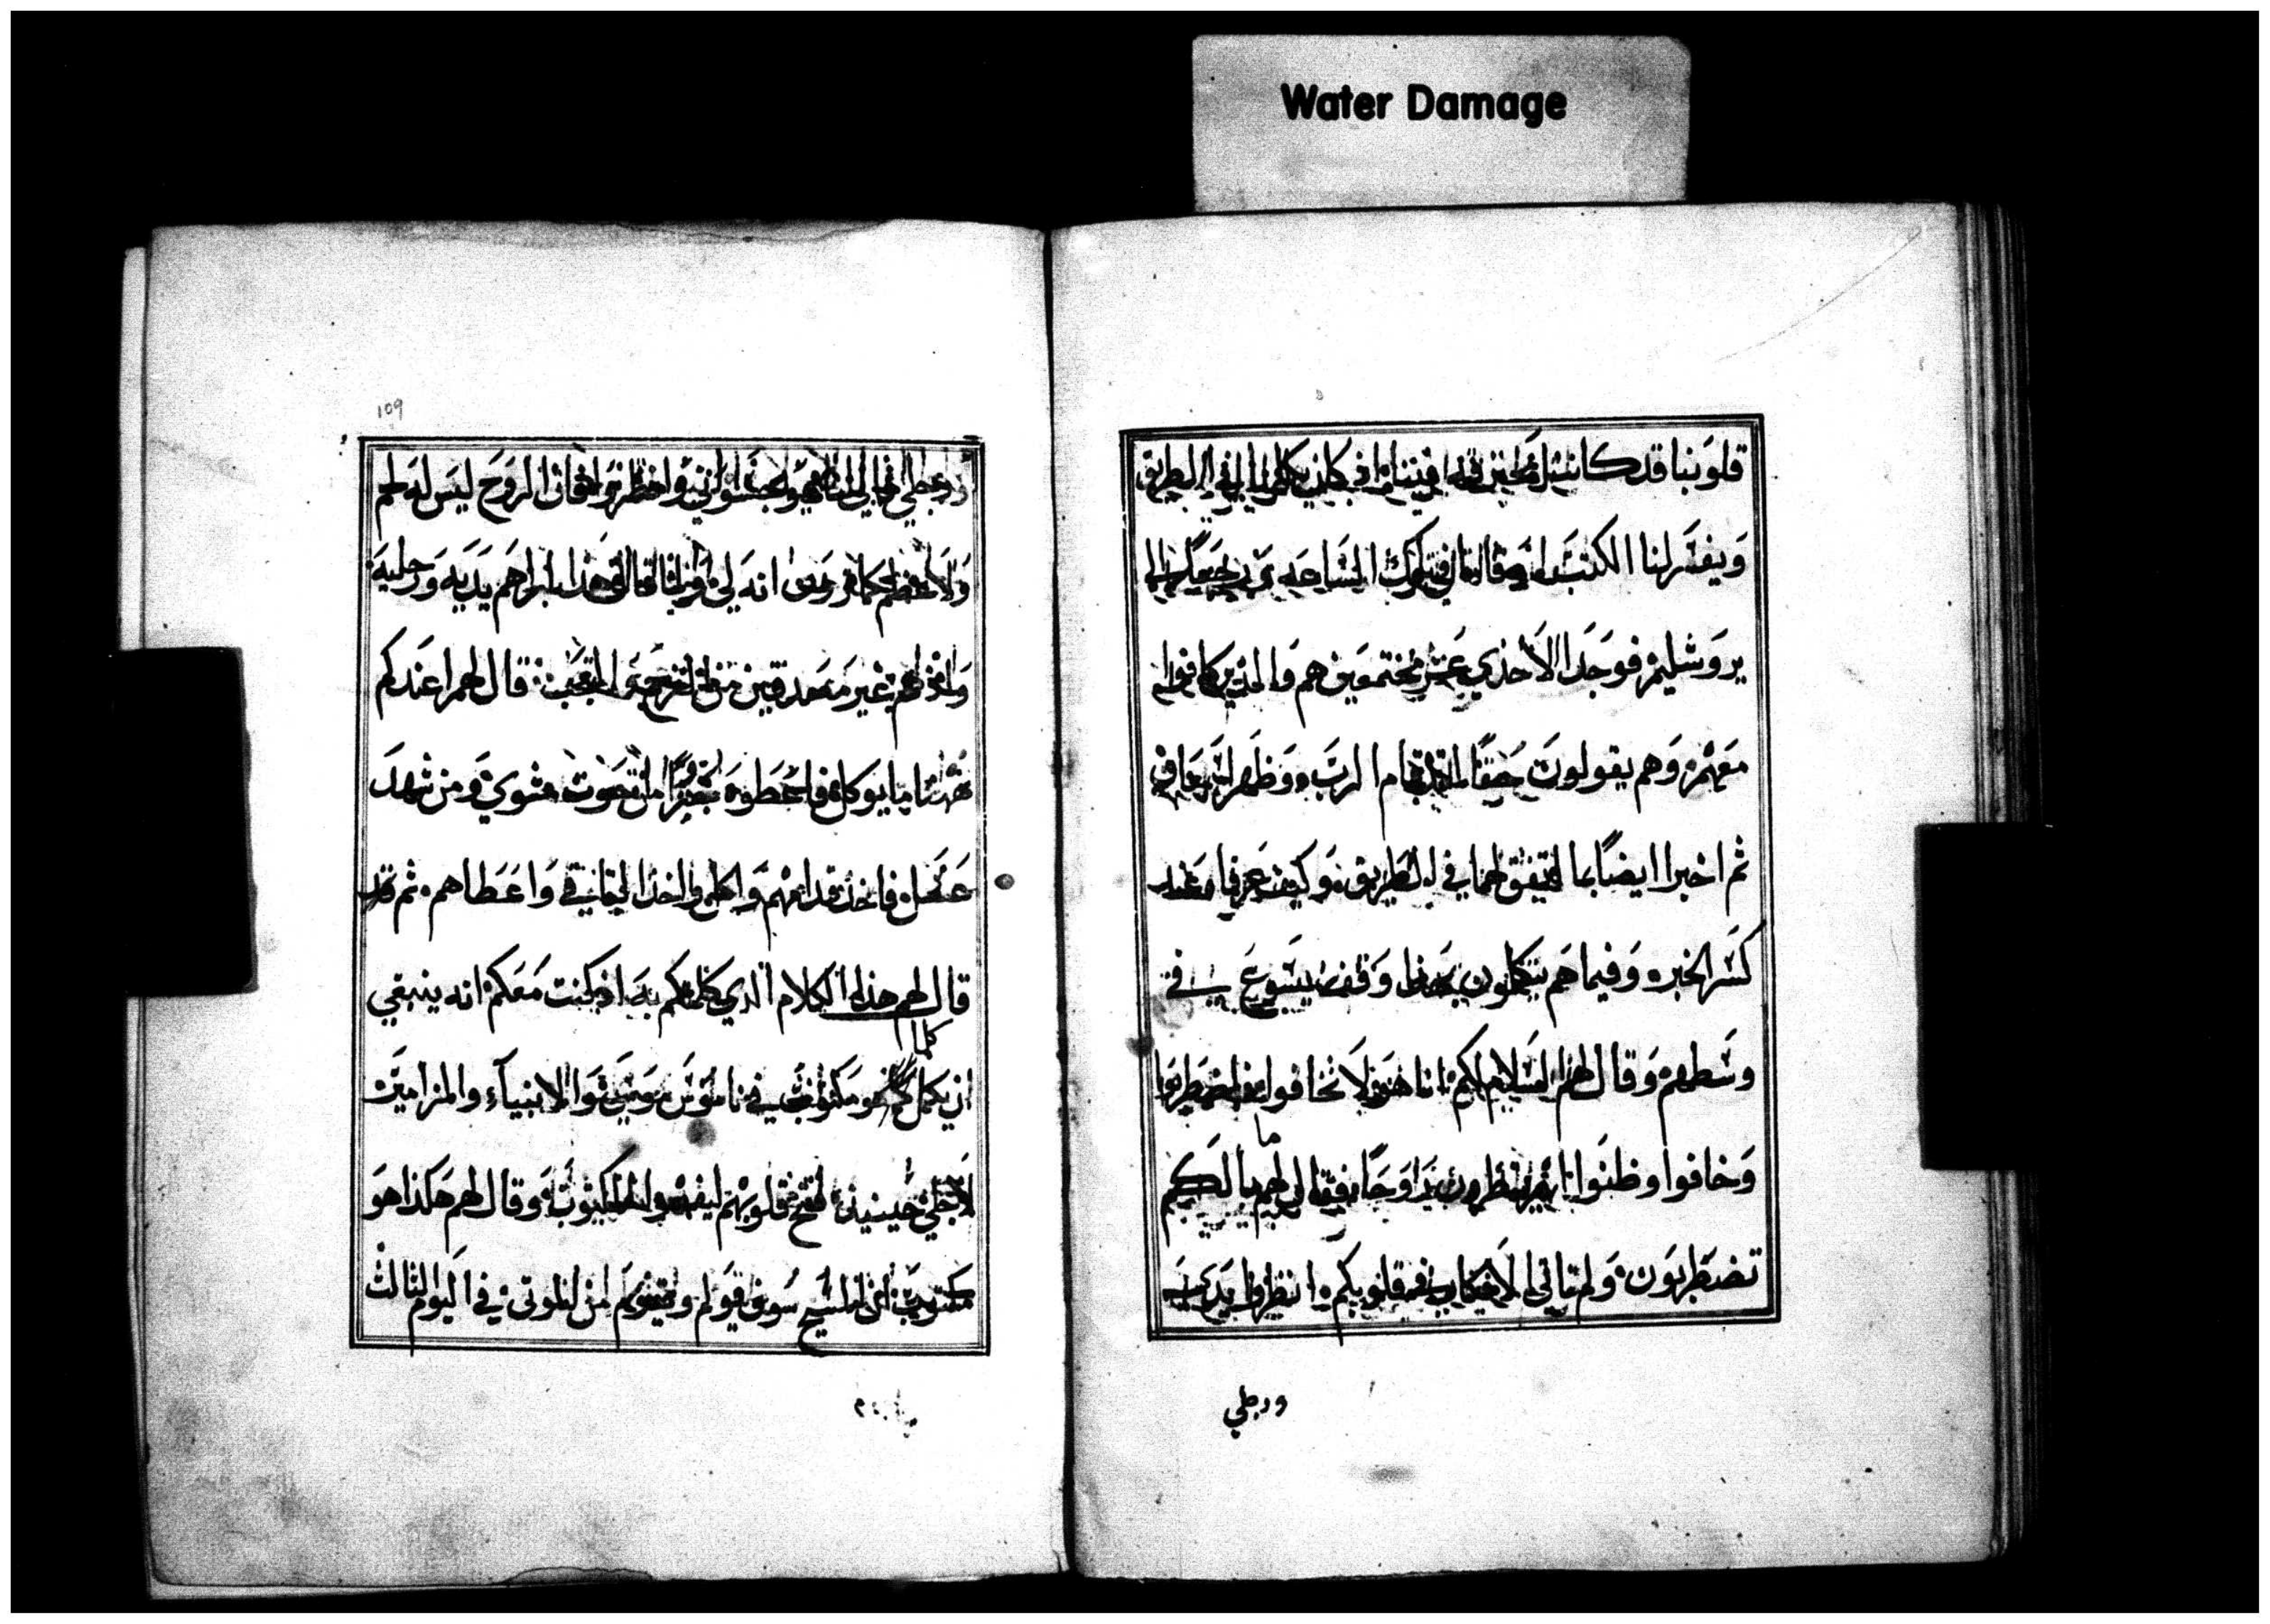 Water Damage
قلوبنا قد كانت محترقة فيننا اذ كان يكلمنا في الطريق
ويفسر لنا الكتب وقاما في تلك الساعه ورجعا الى
يروشليم فوجدا الاحدي عشر مجتمعين هم والذين كانوا
معهم وهم يقولون حقا لقد قام الرب وظهر لسمعان
ثم اخبرا ايضا بما اتفق لهما في الطريق وكيف عرفاه عند
كسر الخبز وفيما هم يتكلمون بهذا وقف يسوع في
وسطهم وقال لهم السلام لكم انا هو لا تخافوا فاضطربوا
وخافوا وظنوا انهم ينظرون روحا فقال لهم ما بالكم
تضطربون ولم تاتي الافكار في قلوبكم انظروا يدي
ورجلي
109
ورجلي فاني انا هو جسوني وانظروا فان الروح ليس له لحم
ولا عظم كما ترون انه لي ولما قال هذا اراهم يديه ورجليه
واذ هم غير مصدقين من الفرح والتعجب قال لهم اعندكم
ههنا ما يوكل فاعطوه جزءا من حوت مشوي ومن شهد
عسل فاخذ قدامهم واكل واخذ الباقي واعطاهم ثم
قال لهم هذا الكلام الذي كلمتكم به اذ كنت معكم انه ينبغي
ان يكمل كلما هو مكتوب في ناموس موسى والانبياء والمزامير
لاجلي حينيذ فتح قلوبهم ليفهموا المكتوب وقال لهم هكذا هو
مكتوب ان المسيح سوف يولم ويقوم من الموتى في اليوم الثالث